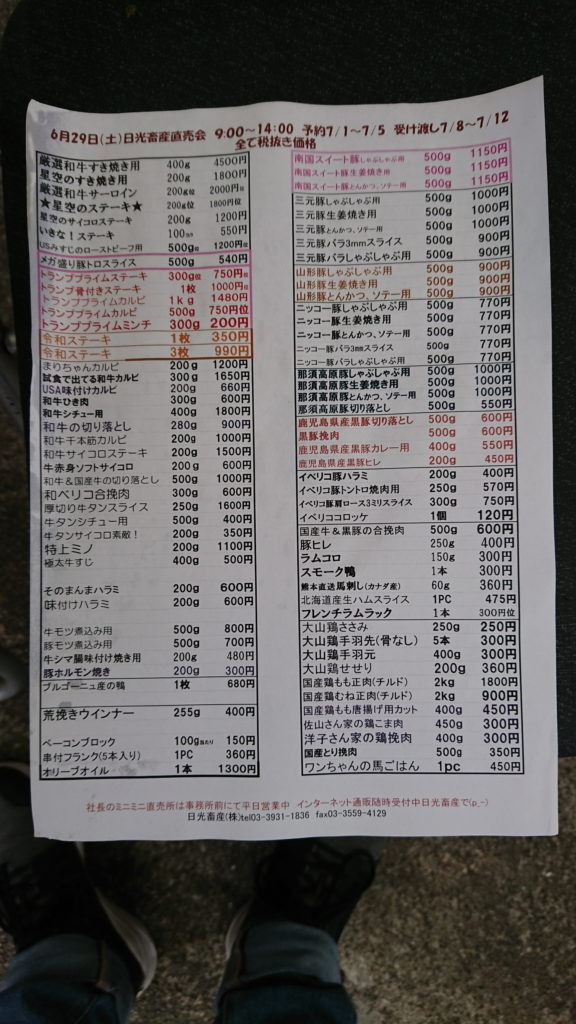 6月29日(土)日光畜産直売会 9:00~14:00 予約7/1~7/5 受け渡し7/8~7/12
全て税抜き価格
厳選和牛すき焼き用 400g 4500円
星空のすき焼き用 200g 1800円
厳選和牛サーロイン 200g位 2000円位
★星空のステーキ★ 200g位 1800円位
星空のサイコロステーキ 200g 1200円
いきな!ステーキ 100g 550円
USみすじのローストビーフ用 500g位 1200円位
メガ盛り豚トロスライス 500g 540円
トランププライムステーキ 300g位 750円位
トランプ骨付きステーキ 1枚 1000円位
トランププライムカルビ 1kg 1480円
トランププライムカルビ 500g 750円位
トランププライムミンチ 300g 200円
令和ステーキ 1枚 350円
令和ステーキ 3枚 990円
まりちゃんカルビ 200g 1200円
試食で出てる和牛カルビ 300g 1650円
USA味付けカルビ 200g 660円
和牛ひき肉 300g 600円
和牛シチュー用 400g 1800円
和牛の切り落とし 280g 900円
和牛千本筋カルビ 200g 1000円
和牛サイコロステーキ 200g 1500円
牛赤身ソフトサイコロ 200g 600円
和牛&国産牛の切り落とし 500g 1000円
和ベリコ合挽肉 300g 600円
厚切り牛タンスライス 250g 1600円
牛タンシチュー用 500g 400円
牛タンサイコロ素敵! 200g 350円
特上ミノ 200g 1100円
極太牛すじ 400g 500円
そのまんまハラミ 200g 600円
味付けハラミ 200g 600円
牛モツ煮込み用 500g 800円
豚モツ煮込み用 500g 700円
牛シマ腸味付け焼き用 200g 480円
豚ホルモン焼き 200g 300円
ブルゴーニュ産の鴨 1枚 680円
荒挽きウインナー 255g 400円
ベーコンブロック 100g当たり 150円
串付フランク(5本入り) 1PC 360円
オリーブオイル 1本 1300円
南国スイート豚しゃぶしゃぶ用 500g 1150円
南国スイート豚生姜焼き用 500g 1150円
南国スイート豚とんかつ、ソテー用 500g 1150円
三元豚しゃぶしゃぶ用 500g 1000円
三元豚生姜焼き用 500g 1000円
三元豚とんかつ、ソテー用 500g 1000円
三元豚バラ3mmスライス 500g 900円
三元豚バラしゃぶしゃぶ用 500g 900円
山形豚しゃぶしゃぶ用 500g 900円
山形豚生姜焼き用 500g 900円
山形豚とんかつ、ソテー用 500g 900円
ニッコー豚しゃぶしゃぶ用 500g 770円
ニッコー豚生姜焼き用 500g 770円
ニッコー豚とんかつ、ソテー用 500g 770円
ニッコー豚バラ3mmスライス 500g 770円
ニッコー豚バラしゃぶしゃぶ用 500g 770円
那須高原豚しゃぶしゃぶ用 500g 1000円
那須高原豚生姜焼き用 500g 1000円
那須高原豚とんかつ、ソテー用 500g 1000円
那須高原豚切り落とし 500g 550円
鹿児島県産黒豚切り落とし 500g 600円
黒豚挽肉 500g 600円
鹿児島県産黒豚カレー用 400g 550円
鹿児島県産黒豚ヒレ 200g 450円
イベリコ豚ハラミ 200g 400円
イベリコ豚トントロ焼肉用 250g 570円
イベリコ豚肩ロース3ミリスライス 300g 750円
イベリココロッケ 1個 120円
国産牛&黒豚の合挽肉 500g 600円
豚ヒレ 250g 400円
ラムコロ 150g 300円
スモーク鴨 1本 300円
熊本直送馬刺し(カナダ産) 60g 360円
北海道産生ハムスライス 1PC 475円
フレンチラムラック 1本 300円位
大山鶏ささみ 250g 250円
大山鶏手羽先(骨なし) 5本 300円
大山鶏手羽元 400g 300円
大山鶏せせり 200g 360円
国産鶏もも正肉(チルド) 2kg 1800円
国産鶏むね正肉(チルド) 2kg 900円
国産鶏もも唐揚げ用カット 400g 450円
佐山さん家の鶏こま肉 450g 300円
洋子さん家の鶏挽肉 400g 300円
国産とり挽肉 500g 350円
ワンちゃんの馬ごはん 1pc 450円
社長のミニミニ直売所は事務所前にて平日営業中 インターネット通販随時受付中日光畜産で(p_-)
日光畜産(株)tel03-3931-1836 fax03-3559-4129